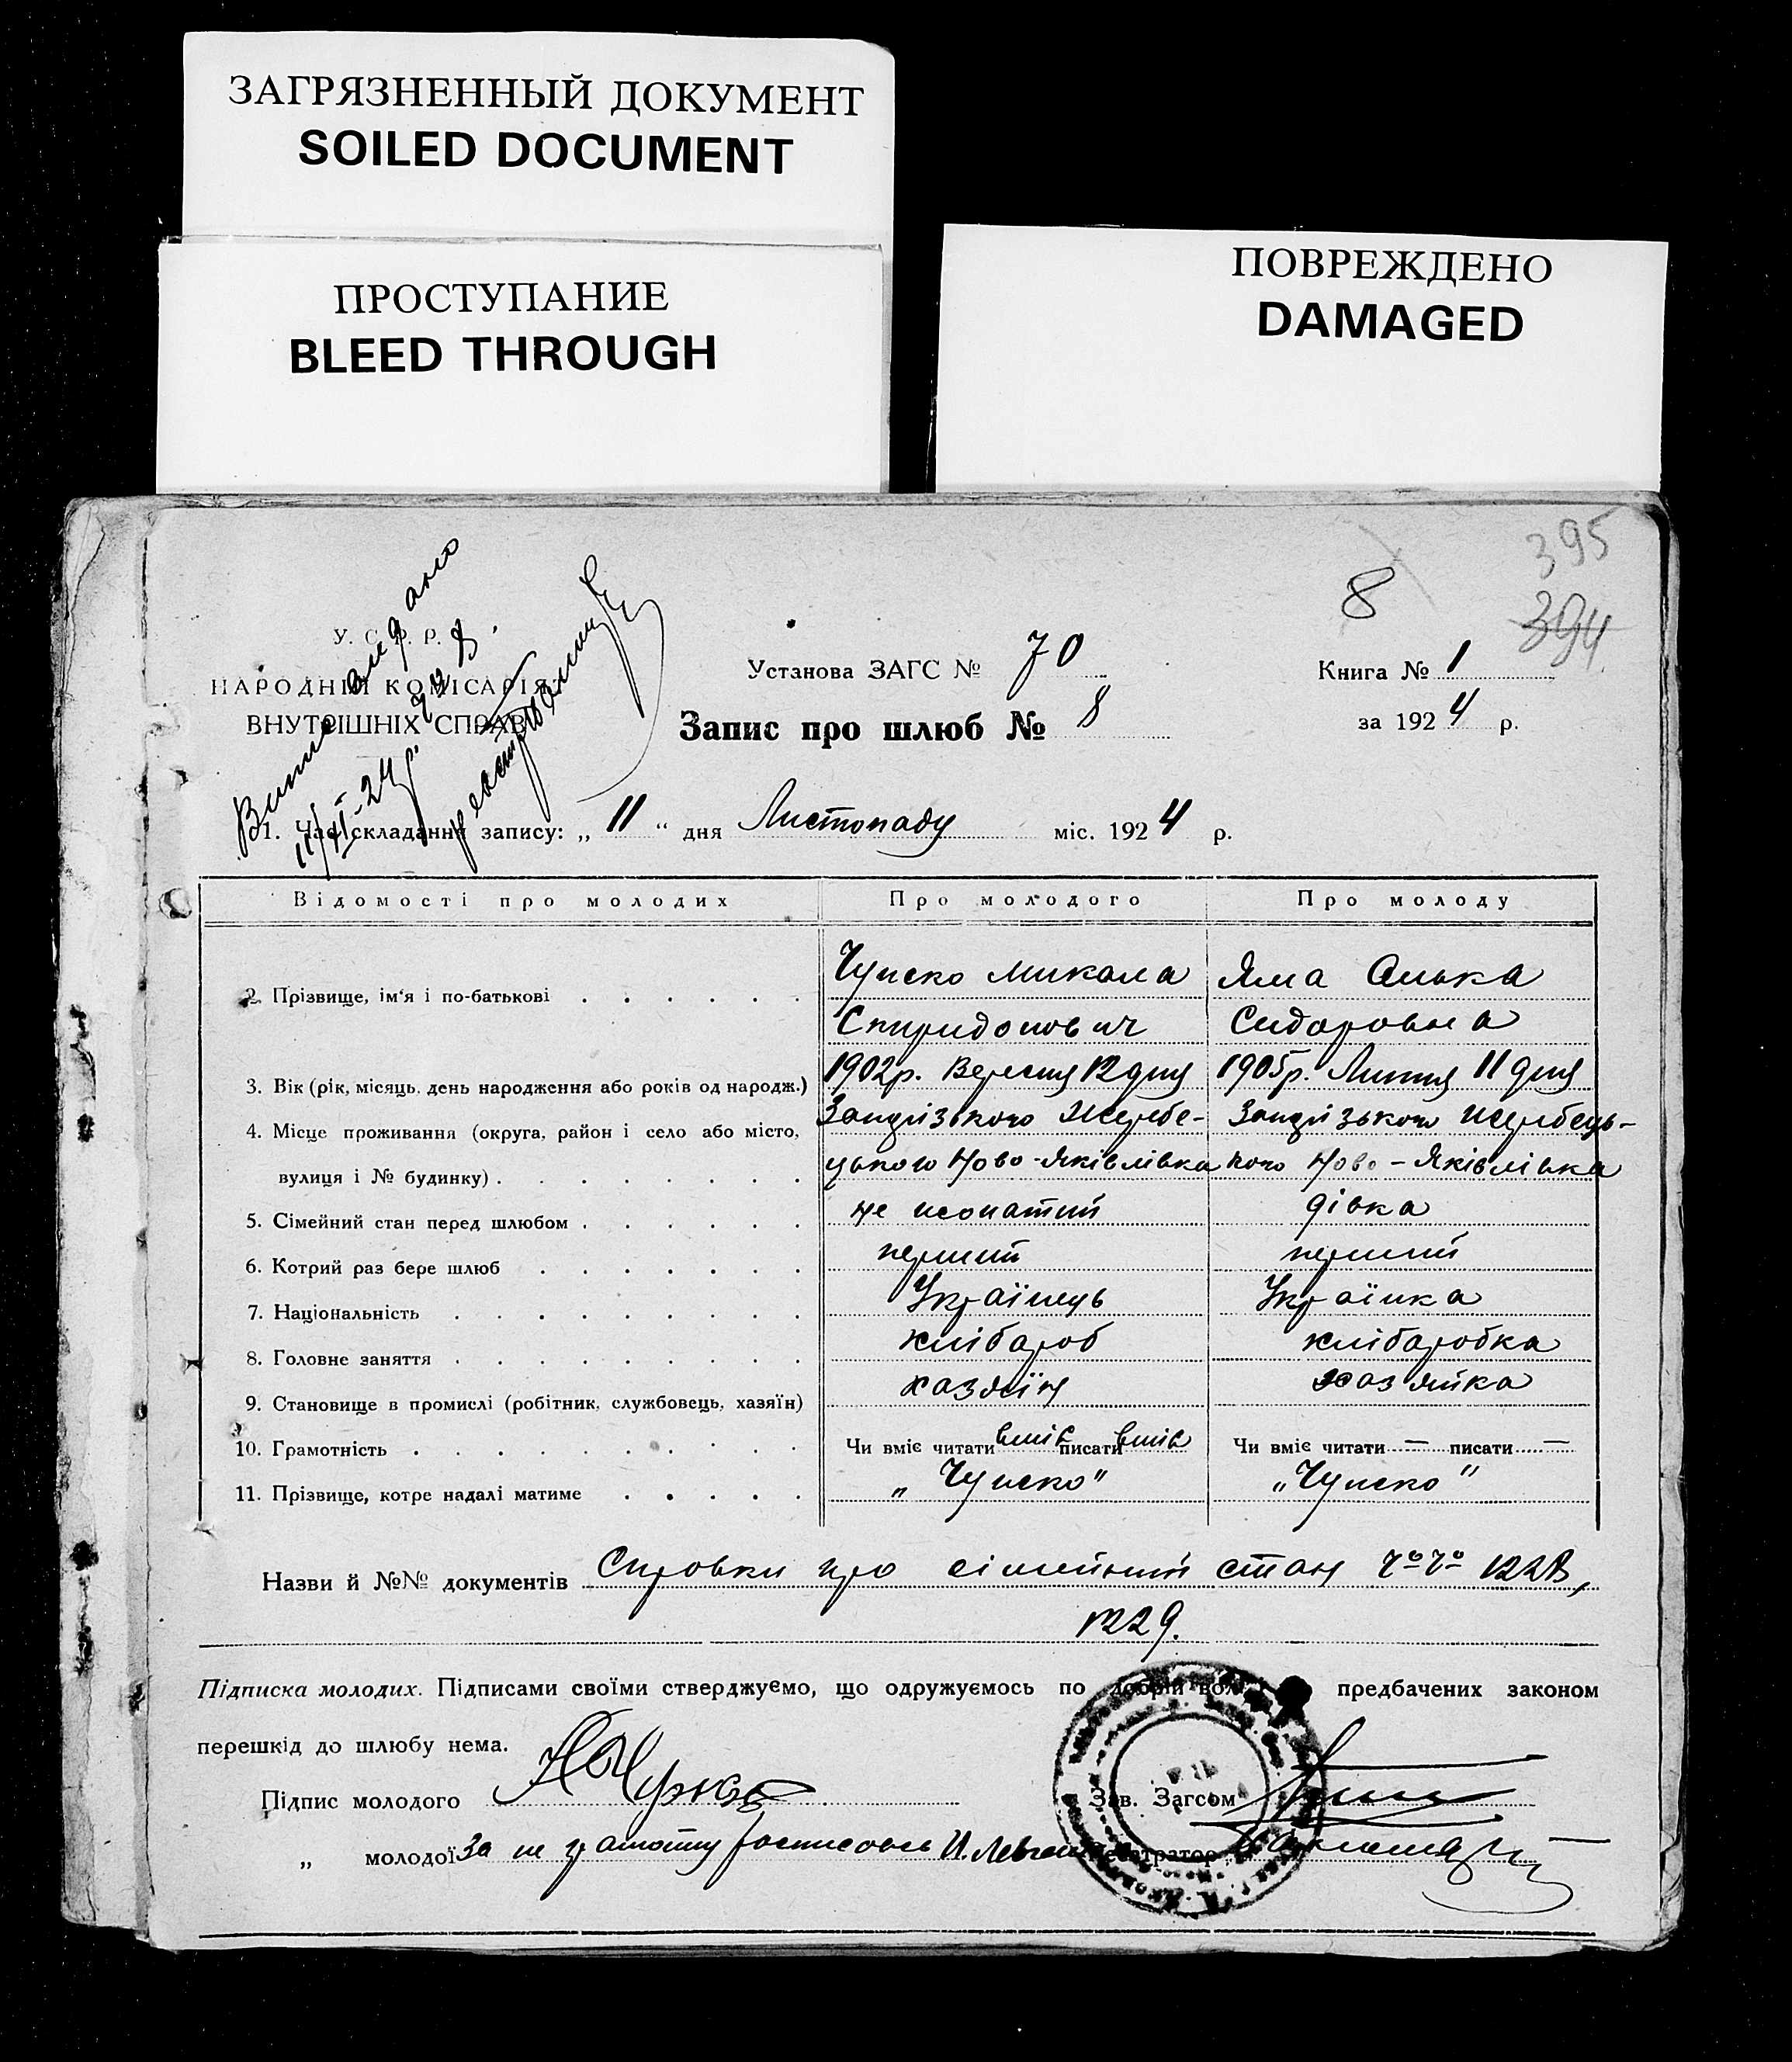 ЗАГРЯЗНЕННЫЙ ДОКУМЕНТ
SOILED DOCUMENT
ПРОСТУПАНИЕ
BLEED THROUGH
ПОВРЕЖДЕНО
DAMAGED
395
394
8
У. С. Р. Р.
НАРОДНІЙ КОМІСАРІЯТ
ВНУТРІШНІХ СПРАВ
Випис видано
11/XI-24р. ч 8.
Установа ЗАГС № 70
Книга № 1
Запис про шлюб № 8
за 1924 р.
1. Час складання запису: „ 11 “ дня Листопаду міс. 1924 р.
Відомості про молодих Про молодого Про молоду
2. Прізвище, ім'я і по-батькові Микола Яма
Спиридонович Сидоровна
3. Вік (рік, місяць, день народження або років од народж.) 1902р. Вересня 12 дня 1905р. Липня 11 дня
4. Місце проживання (округа, район і село або місто, Запорізького Жеребе- Запорізького Жеребець-
вулиця і № будинку) цького Ново-Яківлівка кого Ново-Яківлівка
5. Сімейний стан перед шлюбом не жонатий дівка
6. Котрий раз бере шлюб перший перший
7. Національність Українець Українка
8. Головне заняття хлібароб хлібаробка
9. Становище в промислі (робітник, службовець, хазяїн) хазяїн хазяйка
10. Грамотність Чи вміє читати вміє писати вміє Чи вміє читати — писати —
11. Прізвище, котре надалі матиме
Назви й №№ документів Справки про сімейний стан ч°ч° 1228,
1229.
Підписка молодих. Підписами своїми стверджуємо, що одружуємось по добрій волі предбачених законом
перешкід до шлюбу нема.
Підпис молодого
Зав. Загсом
„ молодої За не грамотну росписовсь И.
Реєстратор